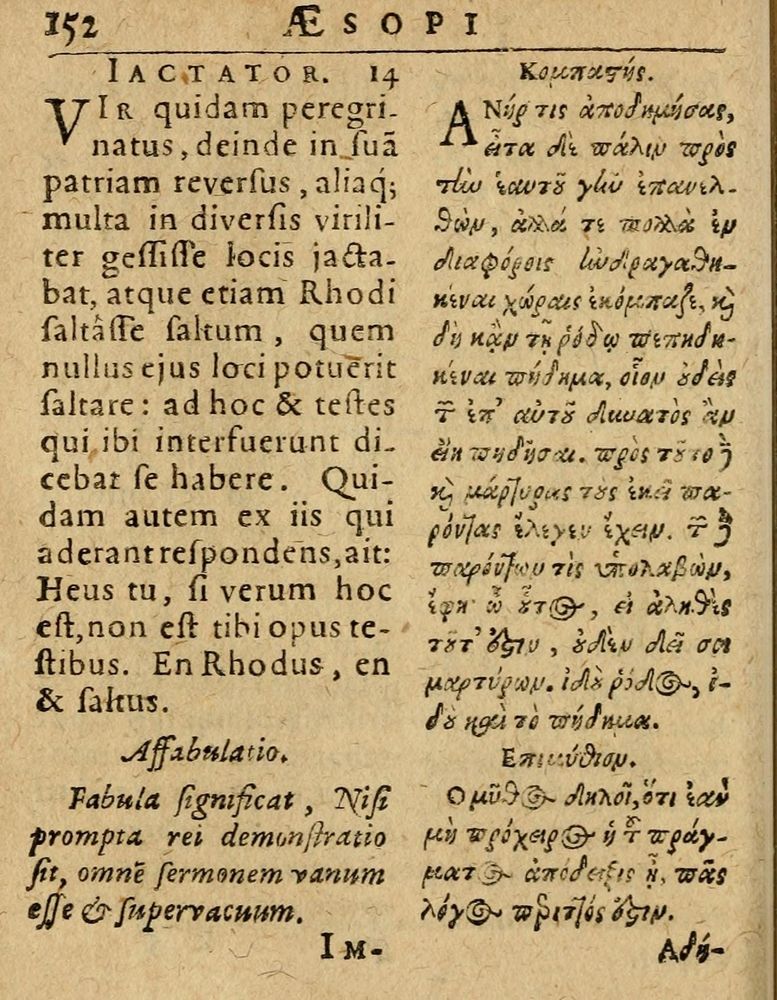 152 ÆSOPI
IACTATOR. 14
VIR quidam peregri-
natus, deinde in suã
patriam reversus, aliaq́;
multa in diversis virili-
ter gessisse locis jacta-
bat, atque etiam Rhodi
saltâsse saltum, quem
nullus ejus loci potuerit
saltare: ad hoc & testes
qui ibi interfuerunt di-
cebat se habere. Qui-
dam autem ex iis qui
aderant respondens, ait:
Heus tu, si verum hoc
est, non est tibi opus te-
stibus. En Rhodus, en
& saltus.
Affabulatio.
Fabula significat, Nisi
prompta rei demonstratio
sit, omnẽ sermonem vanum
esse & supervacuum.
IM-
Κομπαστής.
ΑΝήρ τις ἀποδημήσας,
εἶτα δὲ πάλιν πρὸς
τὴν ἑαυτοῦ γῆν ἐπανελ-
θὼν, ἄλλά τε πολλὰ ἐν
διαφόροις ἠνδραγαθη-
κέναι χώραις ἐκόμπαζε, καὶ
δὴ κᾂν τῇ ῥόδῳ πεπηδη-
κέναι πήδημα, οἷον οὐδεὶς
τῶν ἐπ' αὐτοῦ δυνατὸς ἂν
εἴη πηδῆσαι. πρὸς τοῦτο δὲ
καὶ μάρτυρας τοὺς ἐκεῖ πα-
ρόντας ἔλεγεν ἔχειν. τῶν δὲ
παρόντων τὶς ὑπολαβὼν,
ἔφη ὦ οὗτος, εἰ ἀληθὲς
τοῦτ' ἐστιν, οὐδὲν δεῖ σοι
μαρτύρων. ἰδοὺ ῥόδος, ἰ-
δοὺ καὶ τὸ πήδημα.
Επιμύθιον.
Ο μῦθος δηλοῖ, ὅτι ἐὰν
μὴ πρόχειρος ἡ τοῦ πράγ-
ματος ἀπόδειξις ᾖ, πᾶς
λόγος περιττός ἐστιν.
Αδύ-